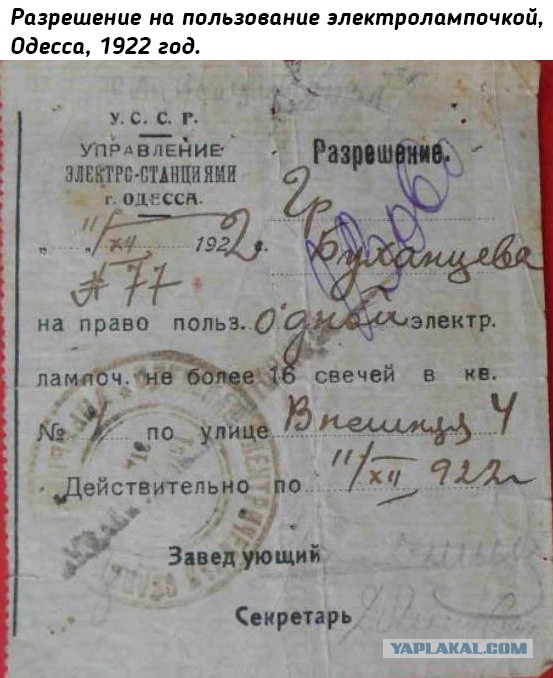 Разрешение на пользование электролампочкой,
Одесса, 1922 год.
У. С. С. Р.
УПРАВЛЕНИЕ
ЭЛЕКТРО-СТАНЦИЯМИ
г. ОДЕССА.
„ 11 “/XII 1922 г.
# 77
Разрешение.
Гр
Буханцева
на право польз. одной электр.
лампоч. не более 16 свечей в кв.
№ 1 по улице Внешняя 4
Действительно по 11/XII 922 г
Заведующий
Секретарь
YAPLAKAL.COM